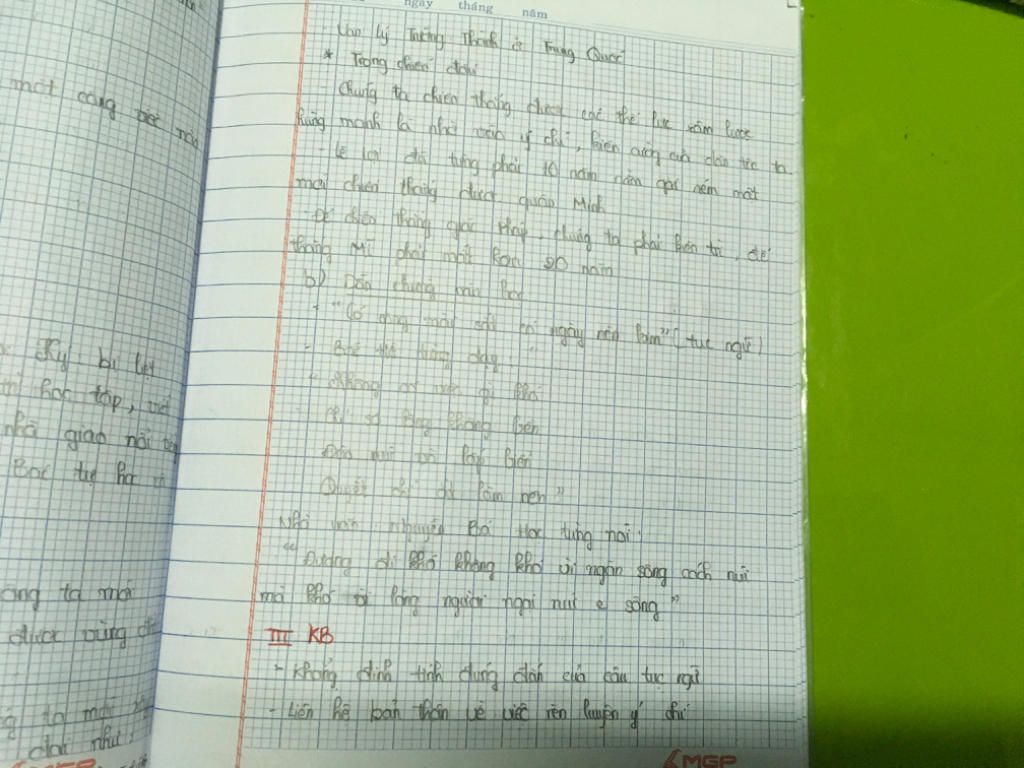 ngày tháng năm
Vạn lý Trường Thành ở Trung Quốc
* Trong chiến đấu
Chúng ta chiến thắng được các thế lực xâm lược
hùng mạnh là nhờ vào ý chí, kiên cường của dân tộc ta
- Lê Lợi đã từng phải 10 năm nằm gai nếm mật
mới chiến thắng được quân Minh
- Để chiến thắng giặc Pháp, chúng ta phải kiên trì, để
thắng Mĩ phải mất hơn 20 năm
b) Dẫn chứng văn học
- "Có công mài sắt có ngày nên kim" (tục ngữ)
- Bác Hồ từng dạy: "
"Không có việc gì khó
Chỉ sợ lòng không bền
Đào núi và lấp biển
Quyết chí ắt làm nên"
Nhà văn Nguyễn Bá Học từng nói:
"Đường đi khó không khó vì ngăn sông cách núi
mà khó vì lòng người ngại núi e sông"
III KB
- Khẳng định tính đúng đắn của câu tục ngữ
- Liên hệ bản thân về việc rèn luyện ý chí
MGP
một càng
Ký bị liệt
học tập,
nhà giáo nổi
Bác tự học
ta mới
được vững
ta mới
như: